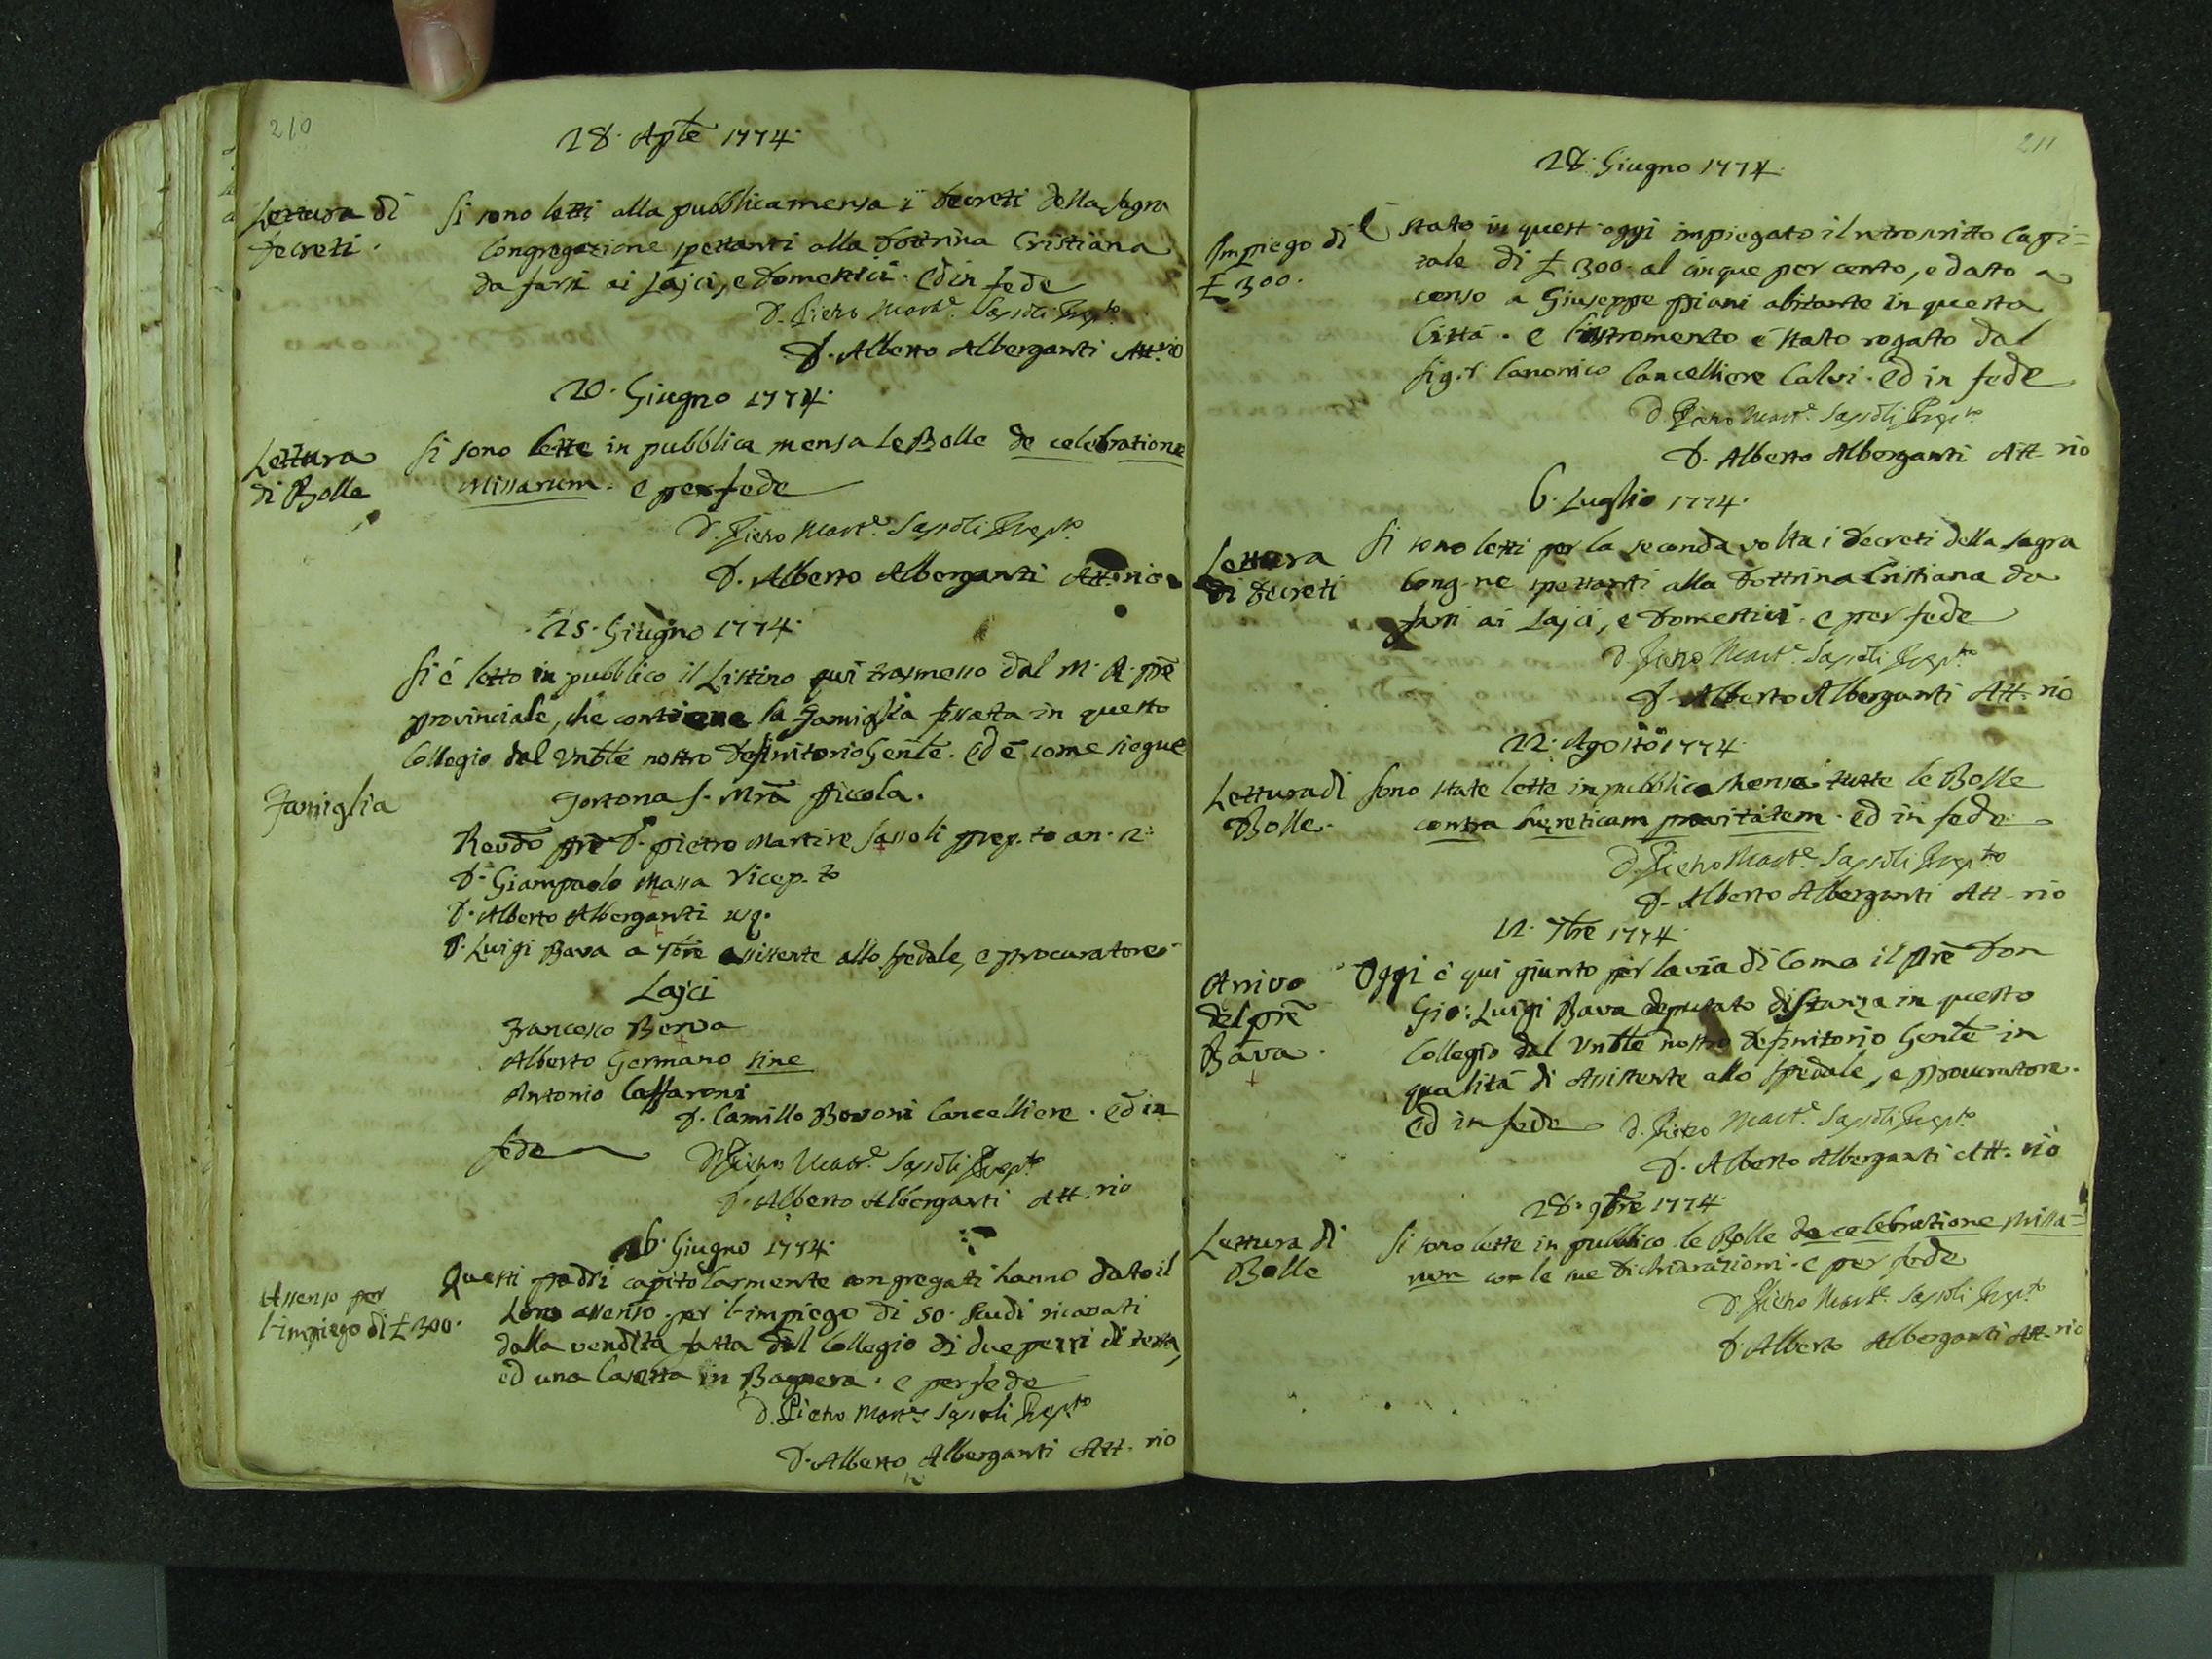 210
28. Aple 1774.
Lettura di
decreti.
Si sono letti alla pubblica mensa i decreti della sagra
Congregazione spettanti alla dottrina Cristiana
da farsi ai Lajci, e domestici. Ed in fede
D. Pietro Mart.e Sassoli Prep.to
D. Alberto Alberganti Att.rio
20. Giugno 1774.
Lettura
di Bolle
Si sono lette in pubblica mensa le Bolle de celebratione
Missarum. e per fede
D. Pietro Mart.e Sassoli Prep.to
D. Alberto Alberganti Att.rio
25. Giugno 1774.
Si è letto in pubblico il Listino qui trasmesso dal M. R. pre
provinciale, che contiene la Famiglia fissata in questo
Collegio dal Vnble nostro Definitorio Gente. Ed è come siegue
Famiglia
Tortona S. Mra piccola.
Revdo pre D. pietro Martire Sassoli prep.to an. 2:
D. Giampaolo Massa Vicep.to
D. Alberto Alberganti usq.
D. Luigi Bava a 7bre assistente allo spedale, e procuratore.
Lajci
Francesco Berva
Alberto Germano sine
Antonio Caffaroni
D. Camillo Bovoni Cancelliere. Ed in
fede
D. Pietro Mart.e Sassoli Prep.to
D. Alberto Alberganti Att.rio
26. Giugno 1774.
Assenso per
l'impiego di £ 300.
Questi padri capitolarmente congregati hanno dato il
Loro assenso per l'impiego di 50. scudi ricavati
dalla vendita fatta dal Collegio di due pezzi di terra,
ed una Casetta in Bagnera. e per fede
D. Pietro Mart.e Sassoli Prep.to
D. Alberto Alberganti Att.rio
211
28. Giugno 1774.
Impiego di
£ 300.
È stato in quest'oggi impiegato il retroscritto Capi=
tale di £ 300. al cinque per cento, e dato a
censo a Giuseppe Piani abitante in questa
Città. e l'instromento è stato rogato dal
Sig.r Canonico Cancelliere Calvi. Ed in fede
D. Pietro Mart.e Sassoli Prep.to
D. Alberto Alberganti Att.rio
6. Luglio 1774.
Lettura
di decreti
Si sono letti per la seconda volta i decreti della sagra
Cong.ne spettanti alla dottrina Cristiana da
farsi ai Lajci, e domestici. e per fede
D. Pietro Mart.e Sassoli Prep.to
D. Alberto Alberganti Att.rio
22. Agosto 1774.
Lettura di
Bolle.
Sono state lette in pubblica mensa tutte le Bolle
contra hæreticam pravitatem. Ed in fede
D. Pietro Mart.e Sassoli Prep.to
D. Alberto Alberganti Att.rio
12. 7bre 1774.
Arrivo
del pre
Bava.
Oggi è qui giunto per la via di Como il pre Don
Gio: Luigi Bava deputato di stanza in questo
Collegio dal Vnble nostro definitorio Gente in
qualità di Assistente allo spedale, e procuratore.
Ed in fede D. Pietro Mart.e Sassoli Prep.to
D. Alberto Alberganti Att.rio
28. 9bre 1774.
Lettura di
Bolle
Si sono lette in pubblico le Bolle de celebratione Missa=
rum con le sue dichiarazioni. e per fede
D. Pietro Mart.e Sassoli Prep.to
D. Alberto Alberganti Att.rio